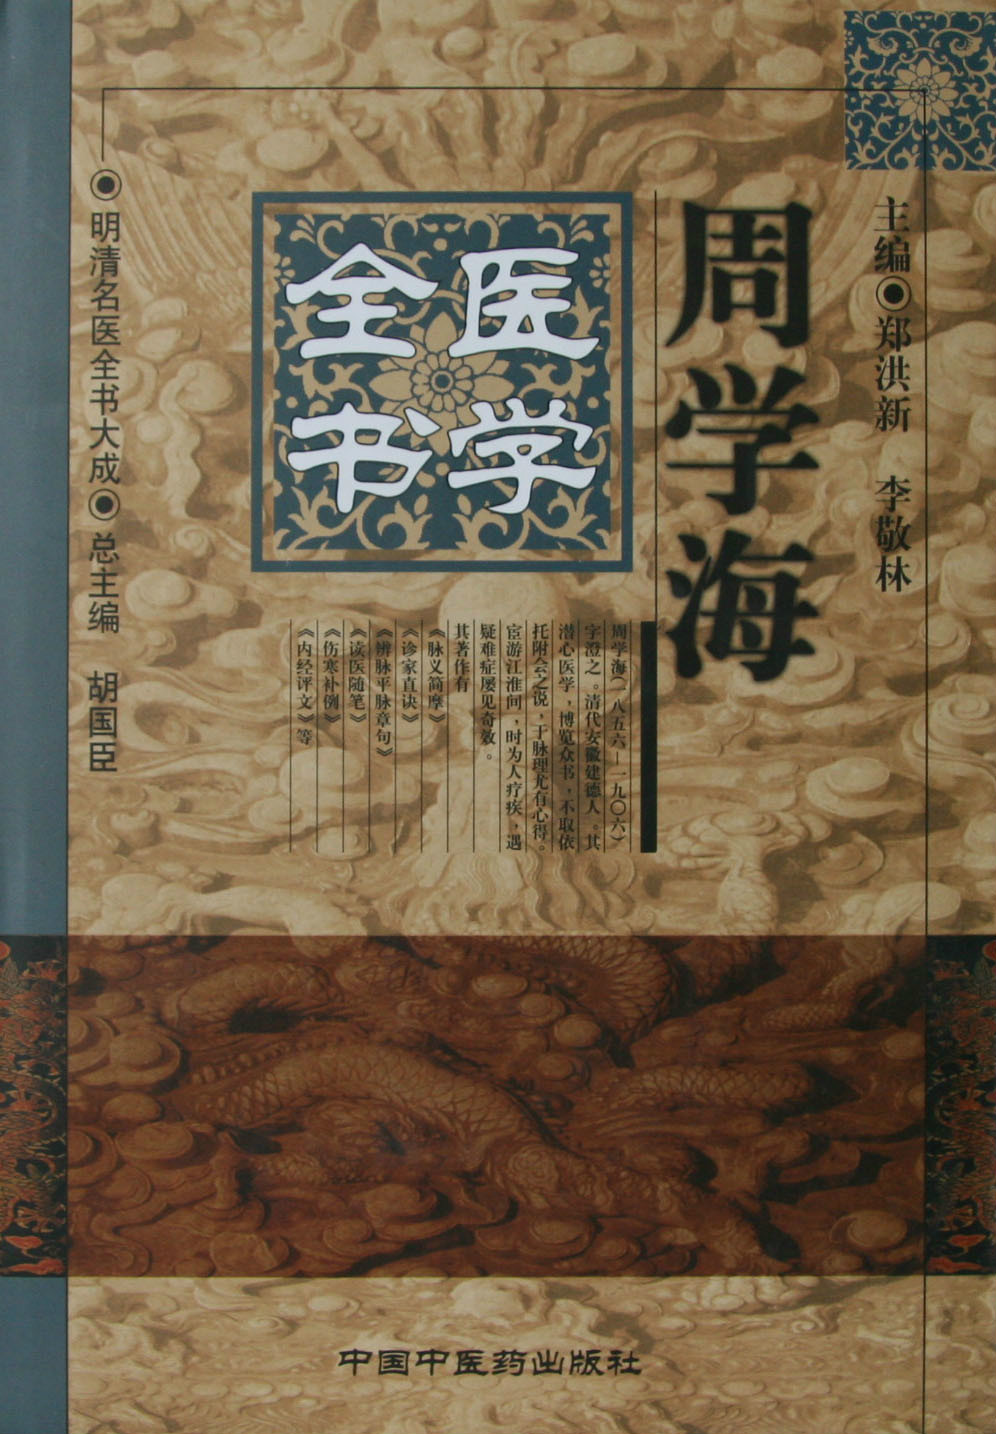 主编◉郑洪新 李敬林
周学海
医学
全书
周学海(一八五六—一九〇六)
字澄之。清代安徽建德人。其
潜心医学,博览众书,不取依
托附会之说,于脉理尤有心得。
宦游江淮间,时为人疗疾,遇
疑难症屡见奇效。
其著作有
《脉义简摩》
《诊家直诀》
《辨脉平脉章句》
《读医随笔》
《伤寒补例》
《内经评文》等
◉明清名医全书大成◉总主编 胡国臣
中国中医药出版社